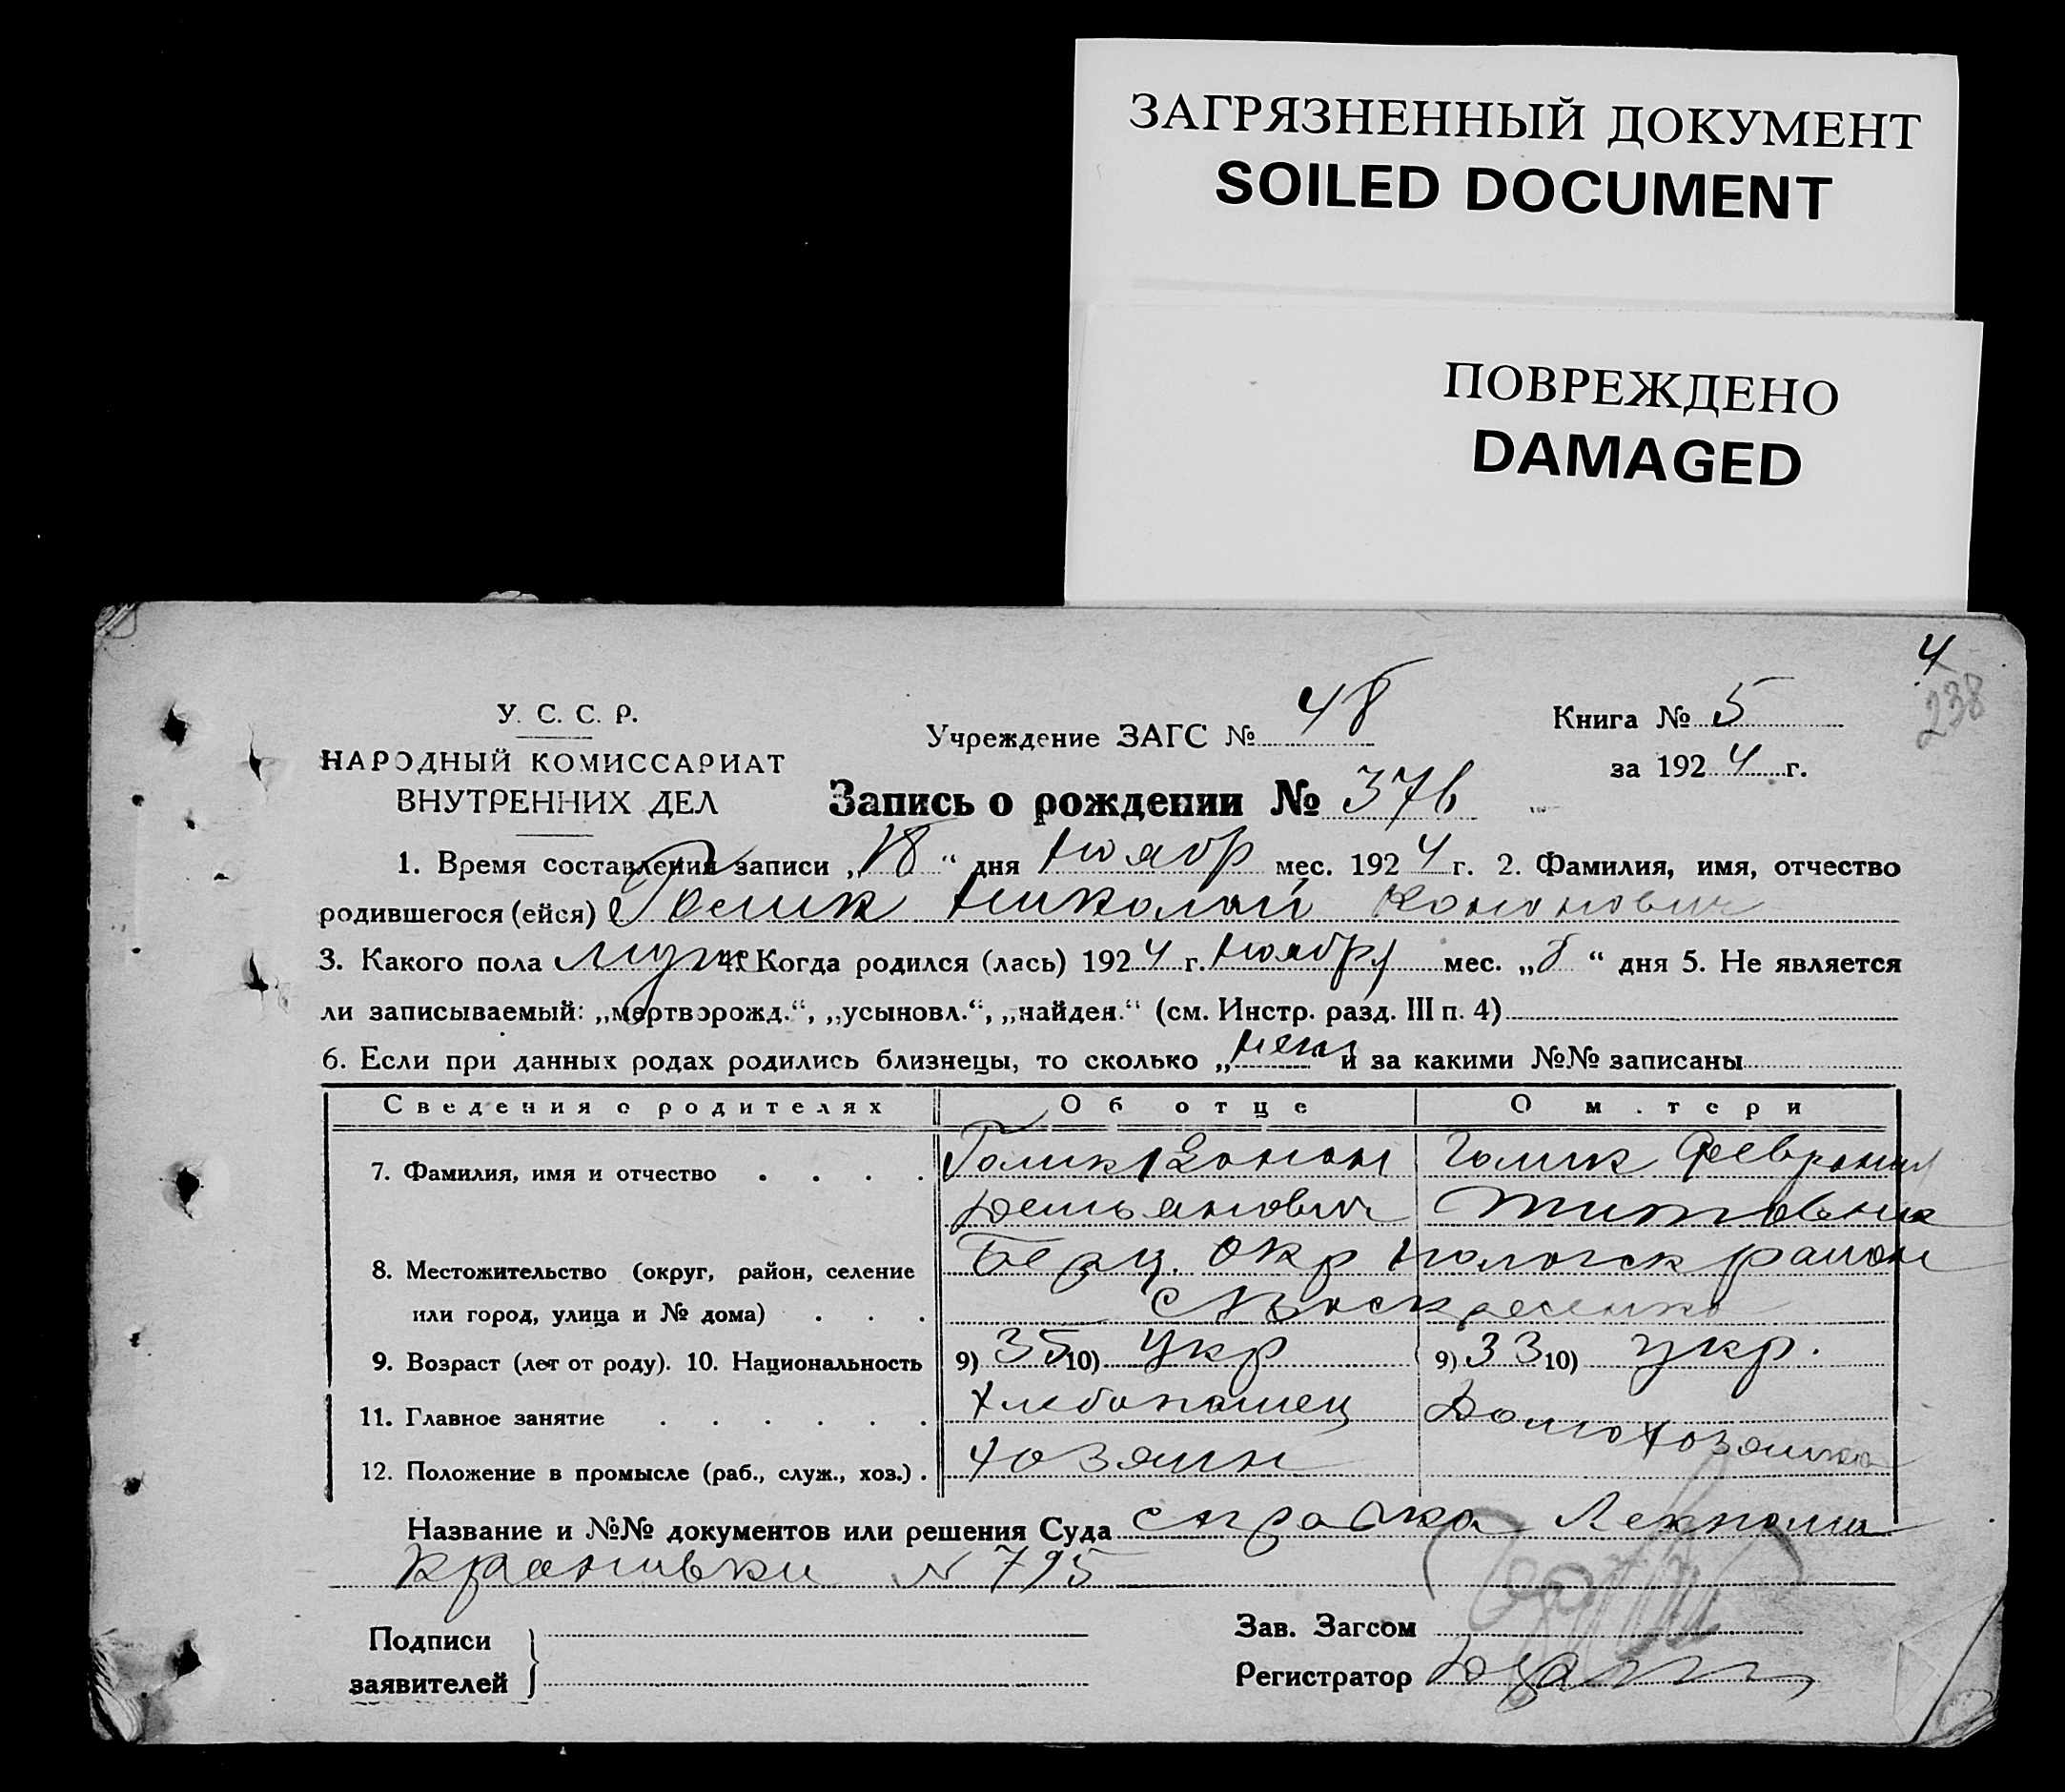 ЗАГРЯЗНЕННЫЙ ДОКУМЕНТ
SOILED DOCUMENT
ПОВРЕЖДЕНО
DAMAGED
4
238
У. С. С. Р.
НАРОДНЫЙ КОМИССАРИАТ
ВНУТРЕННИХ ДЕЛ
Учреждение ЗАГС № 48
Книга № 5
за 1924 г.
Запись о рождении № 376
1. Время составления записи „18“ дня ноябр мес. 1924 г. 2. Фамилия, имя, отчество
родившегося (ейся) Голик Николай Кононович
3. Какого пола муж 4. Когда родился (лась) 1924 г. ноября мес. „8“ дня 5. Не является
ли записываемый: „мертворожд.“, „усыновл.“, „найден.“ (см. Инстр. разд. III п. 4)
6. Если при данных родах родились близнецы, то сколько „нет“ и за какими №№ записаны
Сведения о родителях Об отце О матери
7. Фамилия, имя и отчество Голик Конон Голик Феврония
Демьянович Титовна
8. Местожительство (округ, район, селение Берд. окр Пологск район
или город, улица и № дома) с Воскресенка
9. Возраст (лет от роду). 10. Национальность 9) 35 10) Укр 9) 33 10) укр.
11. Главное занятие хлебопашец Домохозяйка
12. Положение в промысле (раб., служ., хоз.) хозяин
Название и №№ документов или решения Суда справка
N 795
Подписи
заявителей
Зав. Загсом
Регистратор